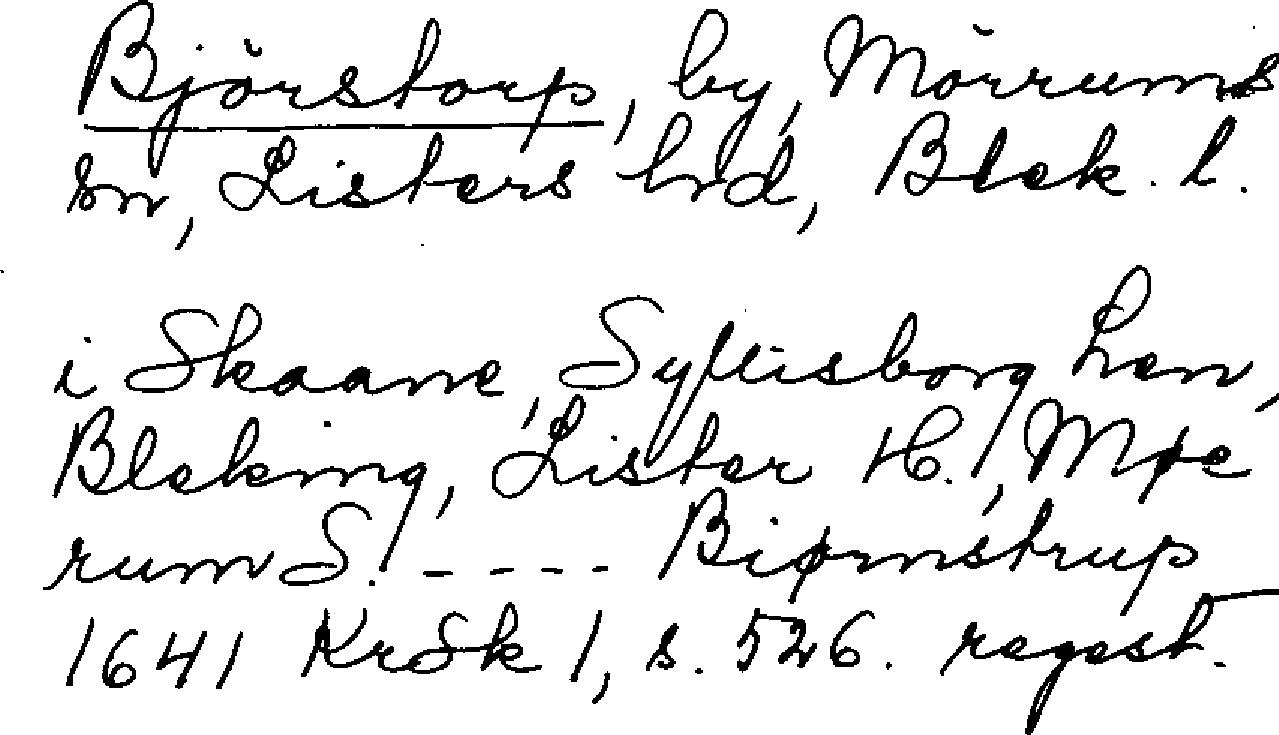 Björstorp, by, Mörrums
sn, Listers hrd, Blek. l.
i Skaane, Sylluisborg Len,
Bleking, Lister H., Møe
rum S. ---- Biørnstrup
1641 KrSk 1, s. 526. regest.